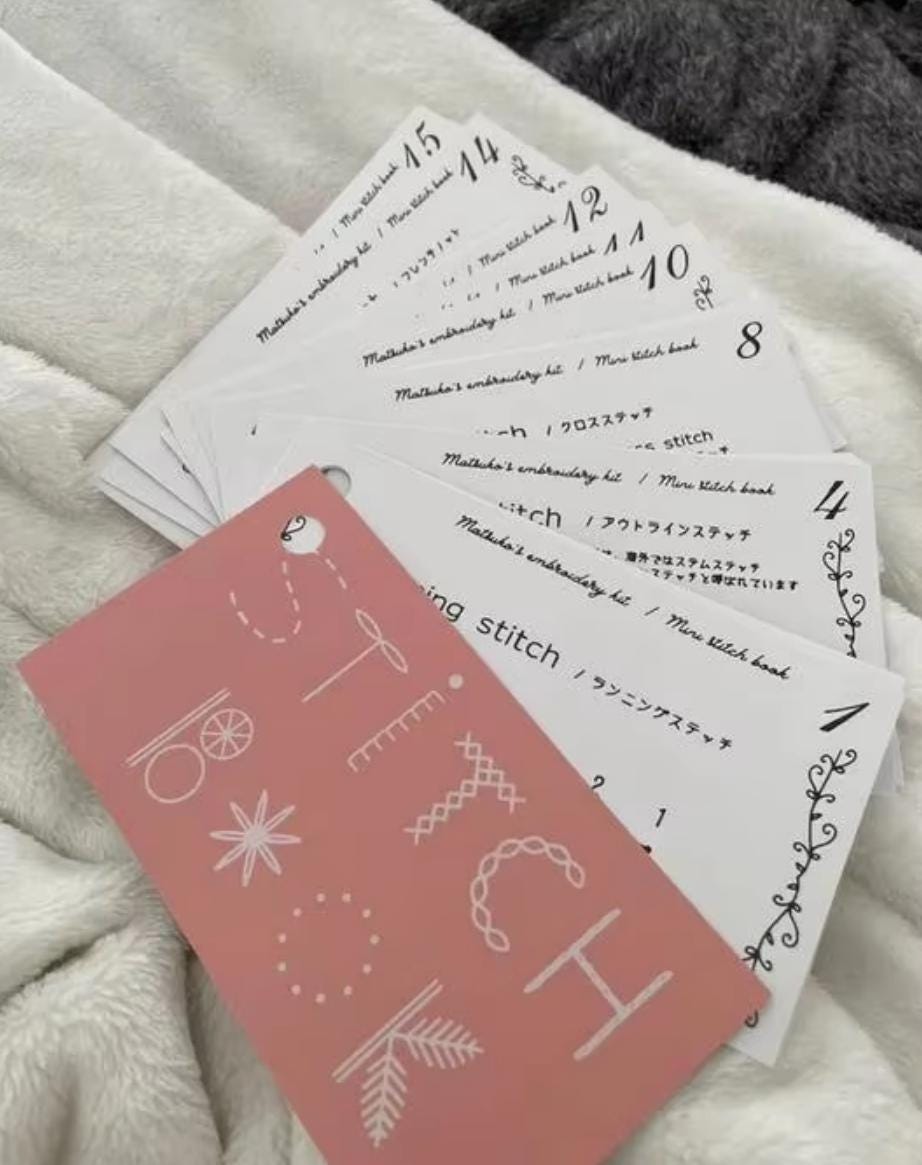 STITCH
BOOK
15
/ Mini stitch book
14
Matsuko's embroidery kit / Mini stitch book
12
/ Mini stitch book
11
/ Mini stitch book
10
Matsuko's embroidery kit / Mini stitch book
8
Matsuko's embroidery kit / Mini stitch book
/ クロスステッチ
stitch
4
Matsuko's embroidery kit / Mini stitch book
/ アウトラインステッチ
海外ではステムステッチ
ステッチと呼ばれています
1
Matsuko's embroidery kit / Mini stitch book
stitch / ランニングステッチ
2
1